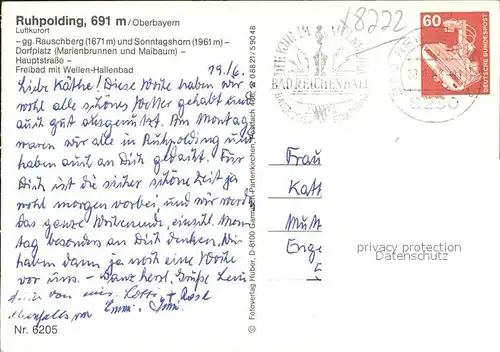 Ruhpolding, 691 m / Oberbayern
Luftkurort
- gg. Rauschberg (1671 m) und Sonntagshorn (1961 m) -
Dorfplatz (Marienbrunnen und Maibaum) -
Hauptstraße -
Freibad mit Wellen-Hallenbad
19./6.
Liebe Käthe! Diese Woche haben wir
wohl alle schönes Wetter gehabt und
auch gut ausgenutzt. Am Montag
waren wir alle in Ruhpolding und
haben auch an Dich gedacht. Für
Dich ist die sicher schöne Zeit ja
wohl morgen vorbei, und wir werden
das ganze Wochenende, einschl. Mon-
tag besonders an Dich denken. Wir
haben dann ja noch eine Woche
vor uns. - Ganz herzl. Grüße
Dich von Lotti + Rose
ebenfalls von Emmi
Nr. 6205
© Fotoverlag Huber, D-8100 Garmisch-Partenkirchen, Tel. 08821/59048
+8222
BAD REICHENHALL
60
DEUTSCHE BUNDESPOST
8230
Frau
Kat
Mut
Enge
privacy protection